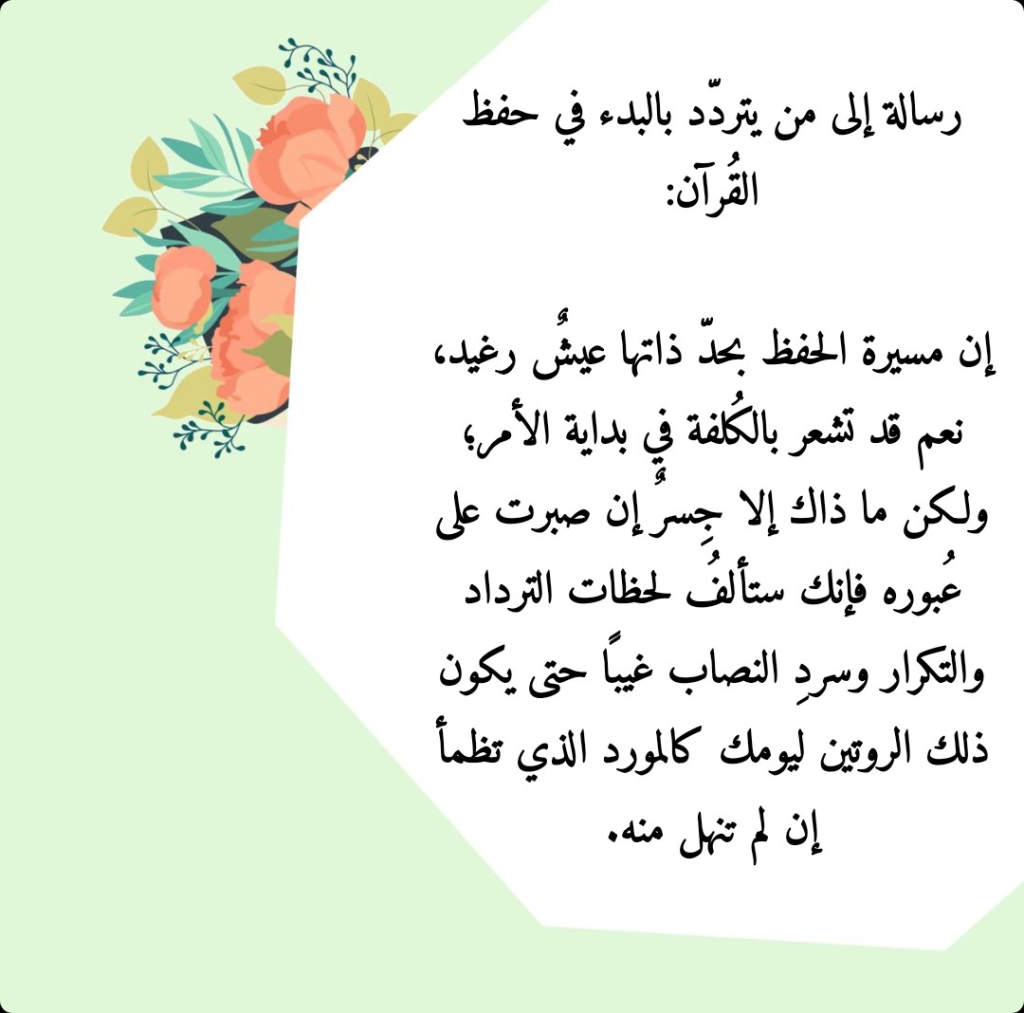 رسالة إلى من يتردّد بالبدء في حفظ
القُرآن:
إن مسيرة الحفظ بحدّ ذاتها عيشٌ رغيد،
نعم قد تشعر بالكُلفة في بداية الأمر؛
ولكن ما ذاك إلا جِسرٌ إن صبرت على
عُبوره فإنك ستألفُ لحظات الترداد
والتكرار وسردِ النصاب غيبًا حتى يكون
ذلك الروتين ليومك كالمورد الذي تظمأ
إن لم تنهل منه.